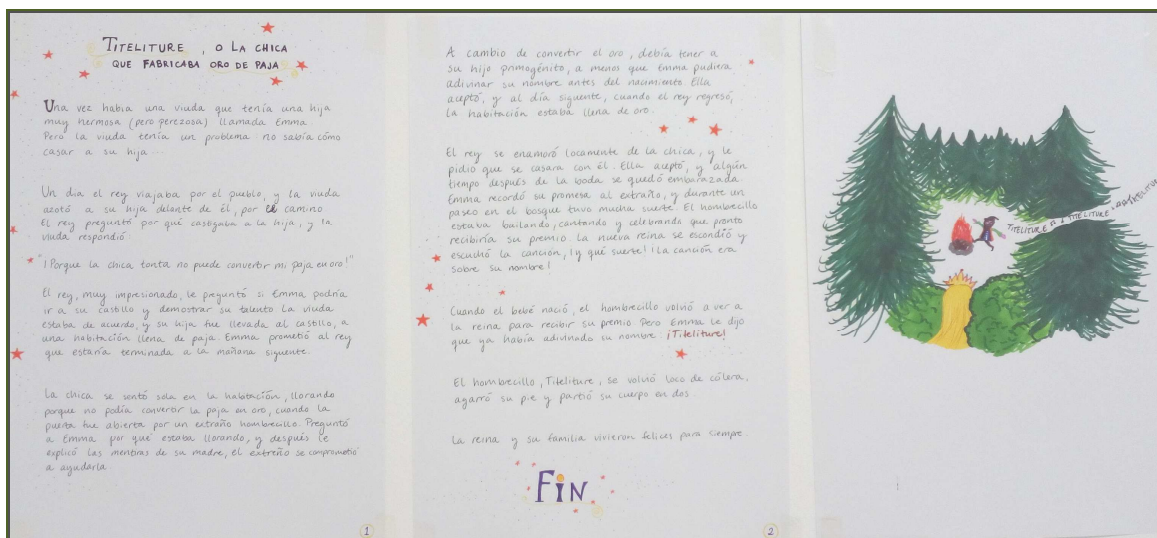 TITELITURE, O LA CHICA
QUE FABRICABA ORO DE PAJA
Una vez había una viuda que tenía una hija
muy hermosa (pero perezosa) llamada Emma.
Pero la viuda tenía un problema: no sabía cómo
casar a su hija...
Un día el rey viajaba por el pueblo, y la viuda
azotó a su hija delante de él, por el camino.
El rey preguntó por qué castigaba a la hija, y la
viuda respondió:
"¡Porque la chica tonta no puede convertir mi paja en oro!"
El rey, muy impresionado, le preguntó si Emma podría
ir a su castillo y demostrar su talento. La viuda
estaba de acuerdo, y su hija fue llevada al castillo, a
una habitación llena de paja. Emma prometió al rey
que estaría terminada a la mañana siguente.
La chica se sentó sola en la habitación, llorando
porque no podía convertir la paja en oro, cuando la
puerta fue abierta por un extraño hombrecillo. Preguntó
a Emma por qué estaba llorando, y después le
explicó las mentiras de su madre, el extreño se comprometió
a ayudarla.
1
A cambio de convertir el oro, debía tener a
su hijo primogénito, a menos que Emma pudiera
adivinar su nombre antes del nacimiento. Ella
aceptó, y al día siguente, cuando el rey regresó,
la habitación estaba llena de oro.
El rey se enamoró locamente de la chica, y le
pidió que se casara con él. Ella aceptó, y algún
tiempo después de la boda se quedó embarazada.
Emma recordó su promesa al extraño, y durante un
paseo en el bosque tuvo mucha suerte. El hombrecillo
estaba bailando, cantando y celebrando que pronto
recibiría su premio. La nueva reina se escondió y
escuchó la canción, ¡y qué suerte! ¡La canción era
sobre su nombre!
Cuando el bebé nació, el hombrecillo volvió a ver a
la reina para recibir su premio. Pero Emma le dijo
que ya había adivinado su nombre: ¡Titeliture!
El hombrecillo, Titeliture, se volvió loco de cólera,
agarró su pie y partió su cuerpo en dos.
La reina y su familia vivieron felices para siempre.
FIN
2
TITELITURE TITELITURE TITELITURE